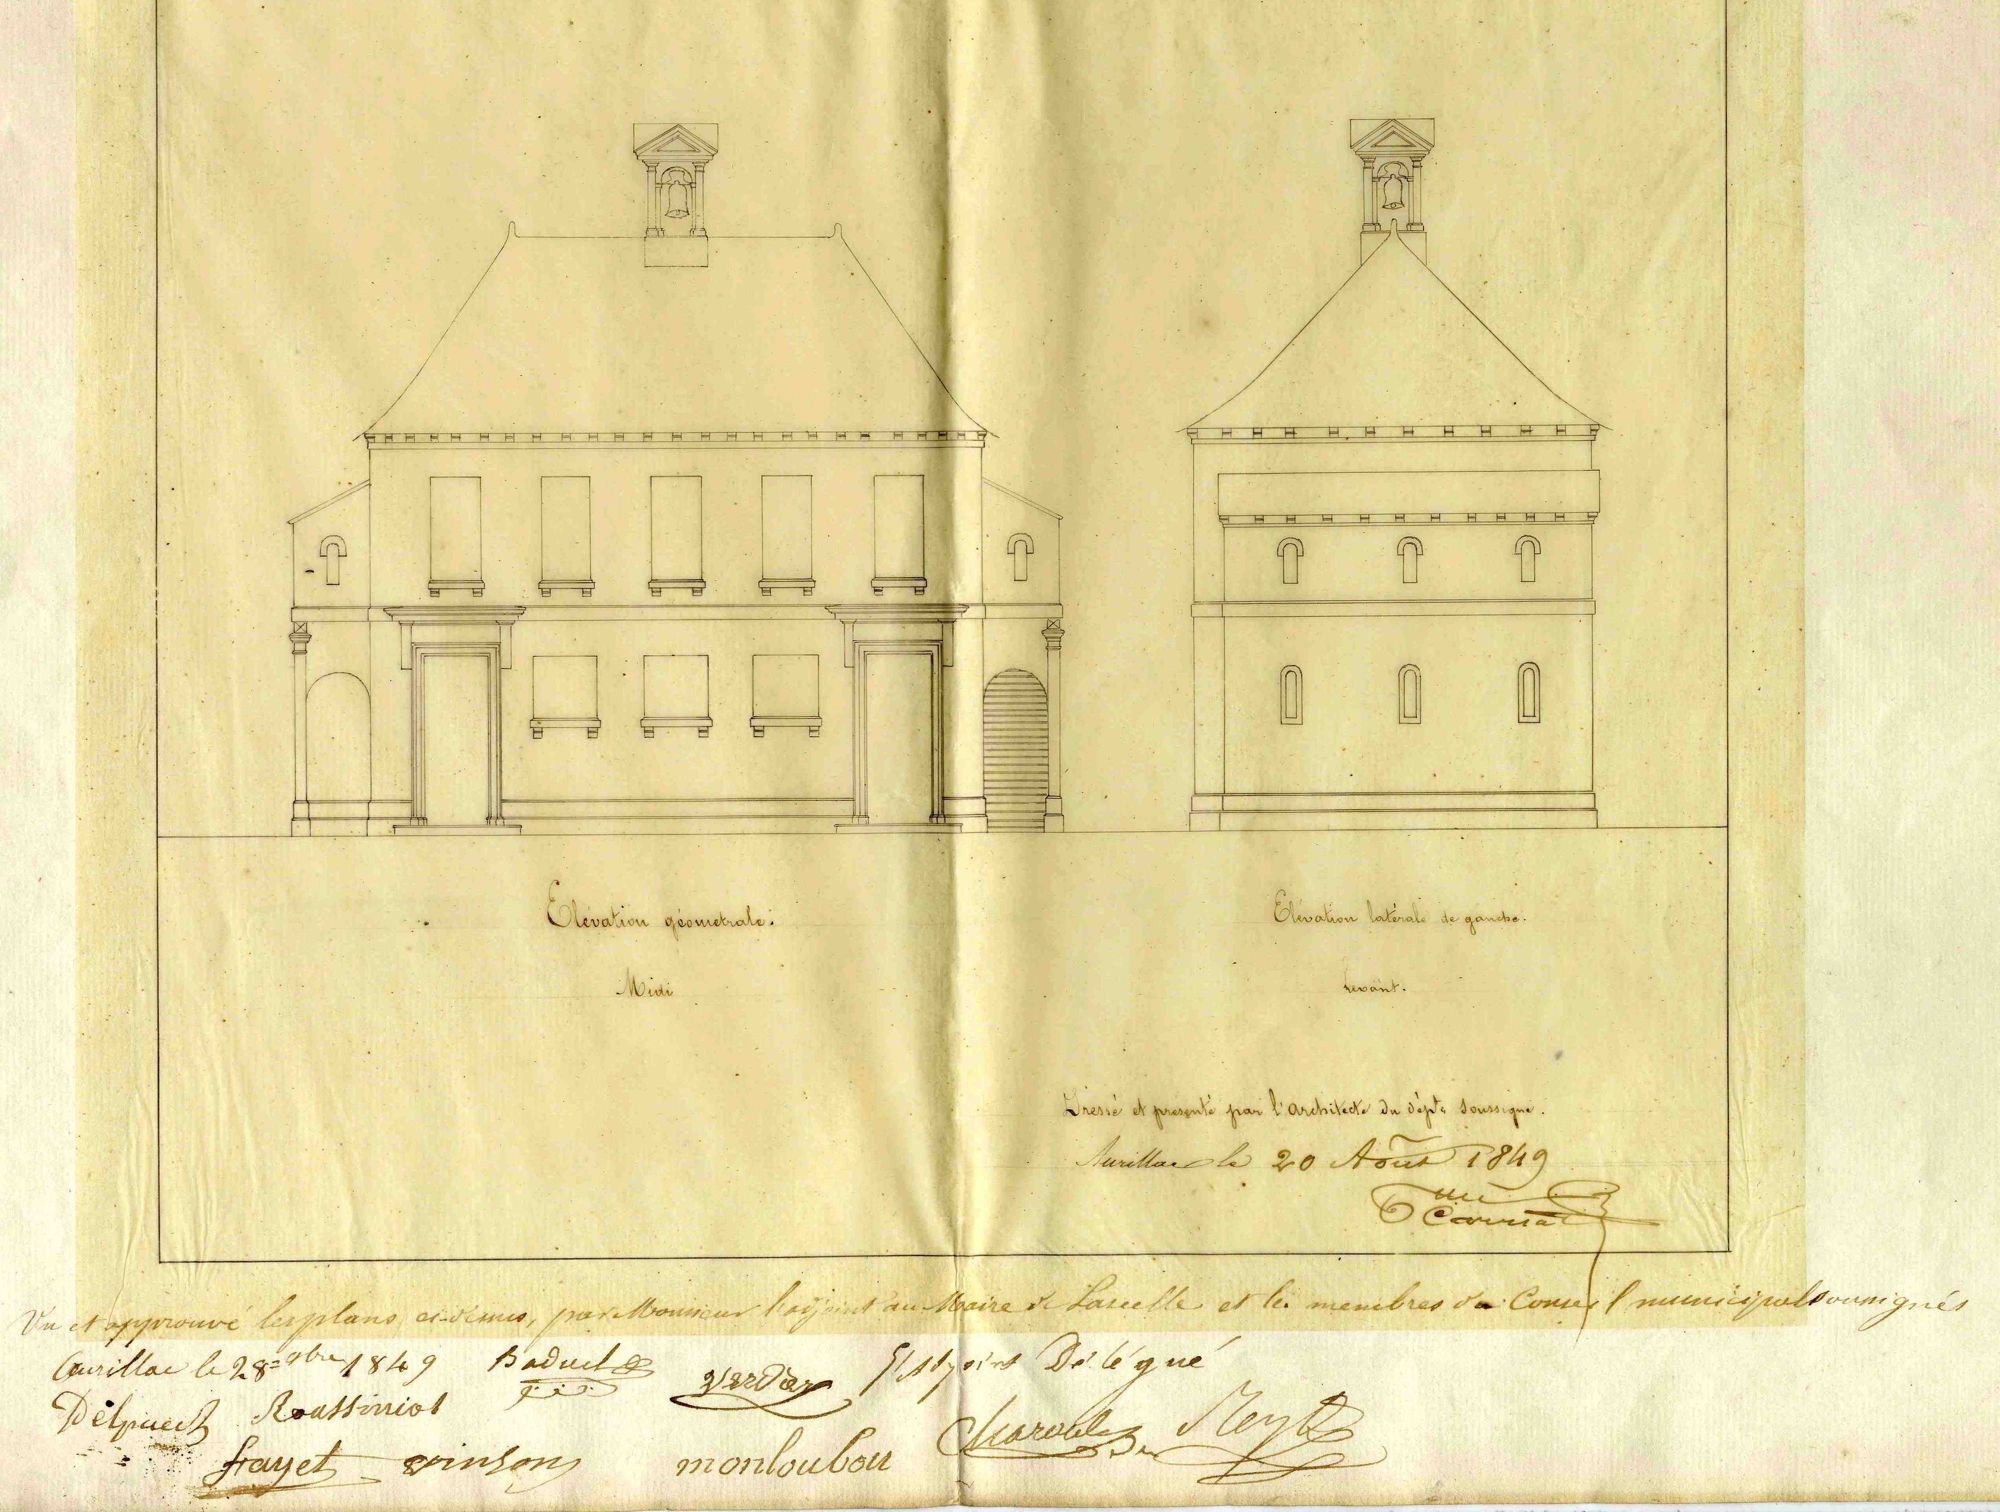 Elévation géométrale.
Elévation latérale de gauche.
Midi
Levant.
Dressé et présenté par l'architecte du dépt. soussigné.
Aurillac le 20 Août 1849
Vu et approuvé les plans ci-dessus, par Monsieur l'adjoint au Maire de Lascelle et les membres du Conseil municipal soussignés
Aurillac le 28 1849 Baduel Verdier l'Adjoint Délégué
Delpuech Roussiniol
Meyt
frayet vinson monloubou